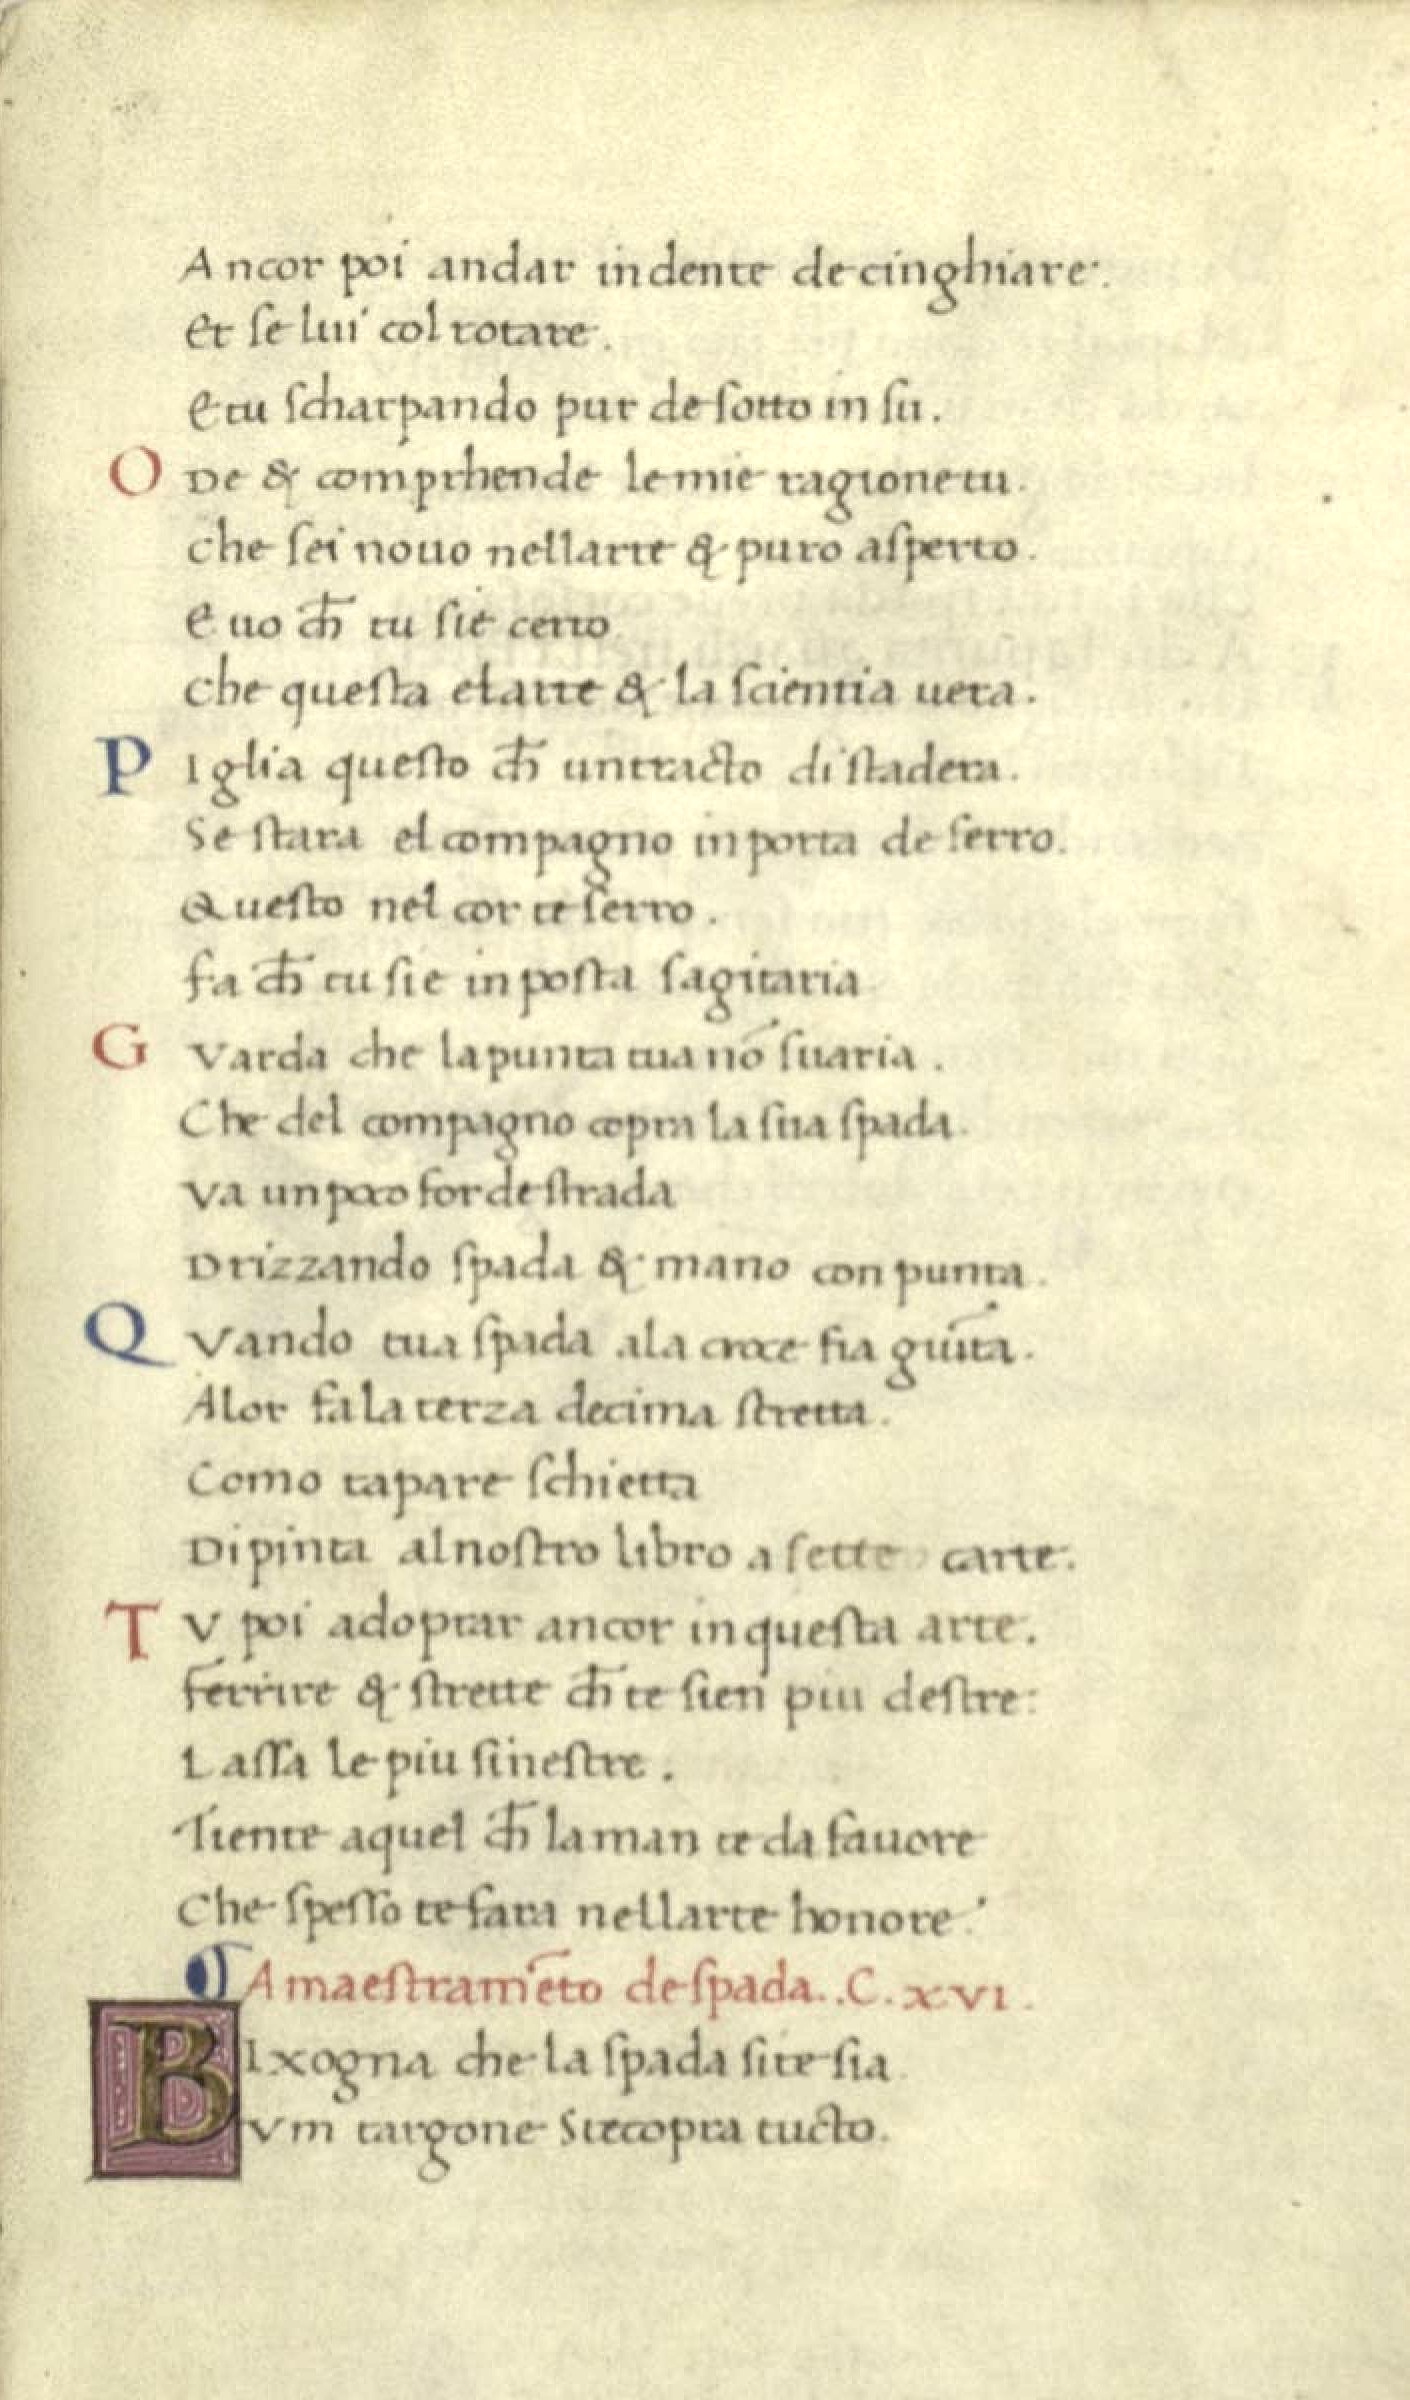 Ancor poi andar indente de cinghiare:
Et se lui col rotare.
E tu scharpando pur de sotto in su.
ODe & comprhende le mie ragione tu.
Che sei nouo nellarte & puro asperto.
E uo ch̄ tu sie certo
Che questa elarte & la scientia uera.
PIglia questo ch̄ untracto di stadera.
Se stara el compagno in porta de ferro.
Questo nel cor te serro.
fa ch̄ tu sie in posta sagitaria
GVarda che la punta tua nō suaria.
Che del compagno copra la sua spada.
Va un poco for de strada
Drizzando spada & mano con punta.
QVando tua spada ala croce fia giūta.
Alor fa la terza decima stretta.
Como tapare schietta
Dipinta al nostro libro a sette carte.
TV poi adoprar ancor in questa arte.
ferrire & strette ch̄ te sien piu destre:
Lassa le piu sinestre.
Tiente a quel ch̄ la man te da fauore
Che spesso te fara nellarte honore.
¶ Amaestramēto de spada..C.xvi.
BIxogna che la spada si te sia
Vm targone Ste copra tucto.